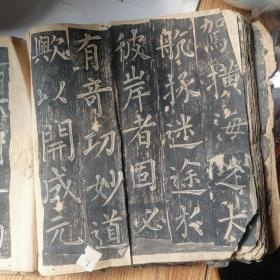 駕橫海之大
航拯迷途於
彼岸者固必
有奇功妙道
歟以開成元